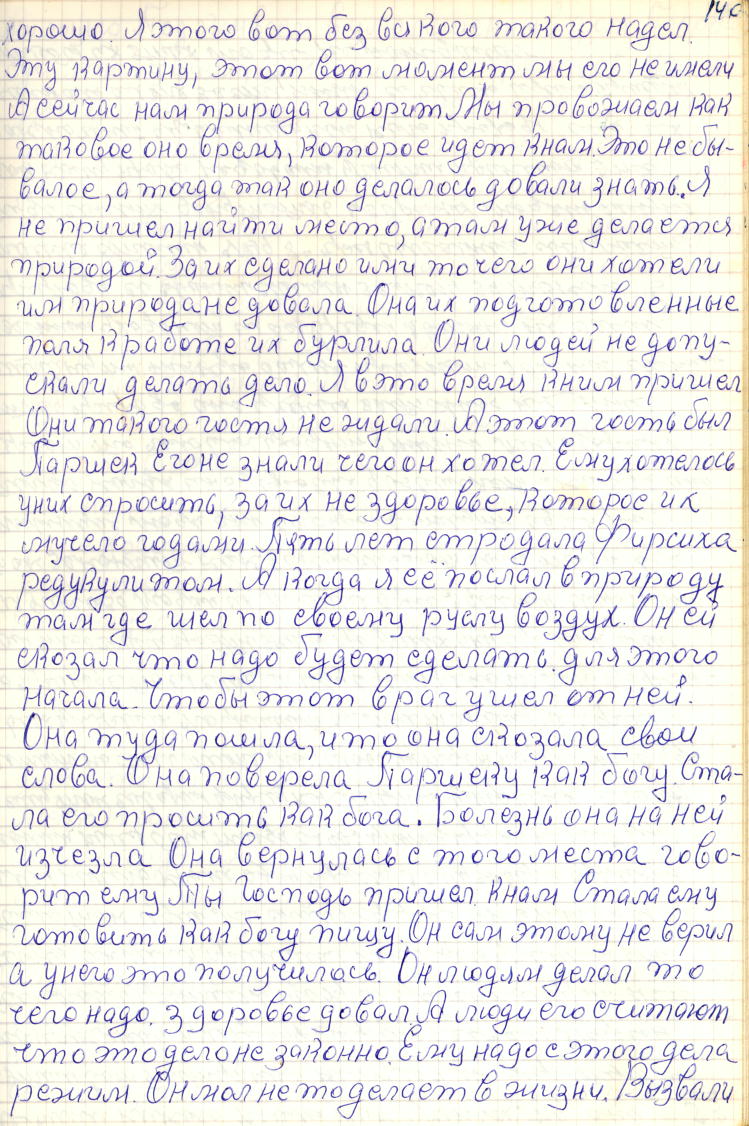 14с
хорошо. Я этого вот без всякого такого надел.
Эту картину, этот вот момент мы его не имели
А сейчас нам природа говорит Мы провожаем как
таковое оно время, которое идет к нам. Это не бы-
валое, а тогда так оно делалось довали знать. Я
не пришел найти место, а там уже делается
природой. За их сделано ими то чего они хотели
им природа не довала. Она их подготовленные
поля к работе их бурлила. Они людей не допу-
скали делать дело. Я в это время к ним пришел
Они такого гостя не ждали. А этот гость был
Паршек Его не знали чего он хотел. Ему хотелось
у них спросить, за их не здоровье, которое их
мучело годами. Пять лет стродала Фирсиха
редукулитом. А когда я её послал в природу
там где шел по своему руслу воздух. Он ей
скозал что надо будет сделать. для этого
начала. Чтобы этот враг ушел от ней.
Она туда пошла, и то она скозала свои
слова. Она поверела Паршеку как богу. Ста-
ла его просить как бога. Болезнь она на ней
изчезла Она вернулась с того места гово-
рит ему Ты Господь пришел к нам Стала ему
готовить как богу пищу. Он сам этому не верил
а у него это получилась. Он людям делал то
чего надо. здоровье довал А люди его считают
что это дело не законно. Ему надо с этого дела
режим. Он мол не то делает в жизни. Вызвали